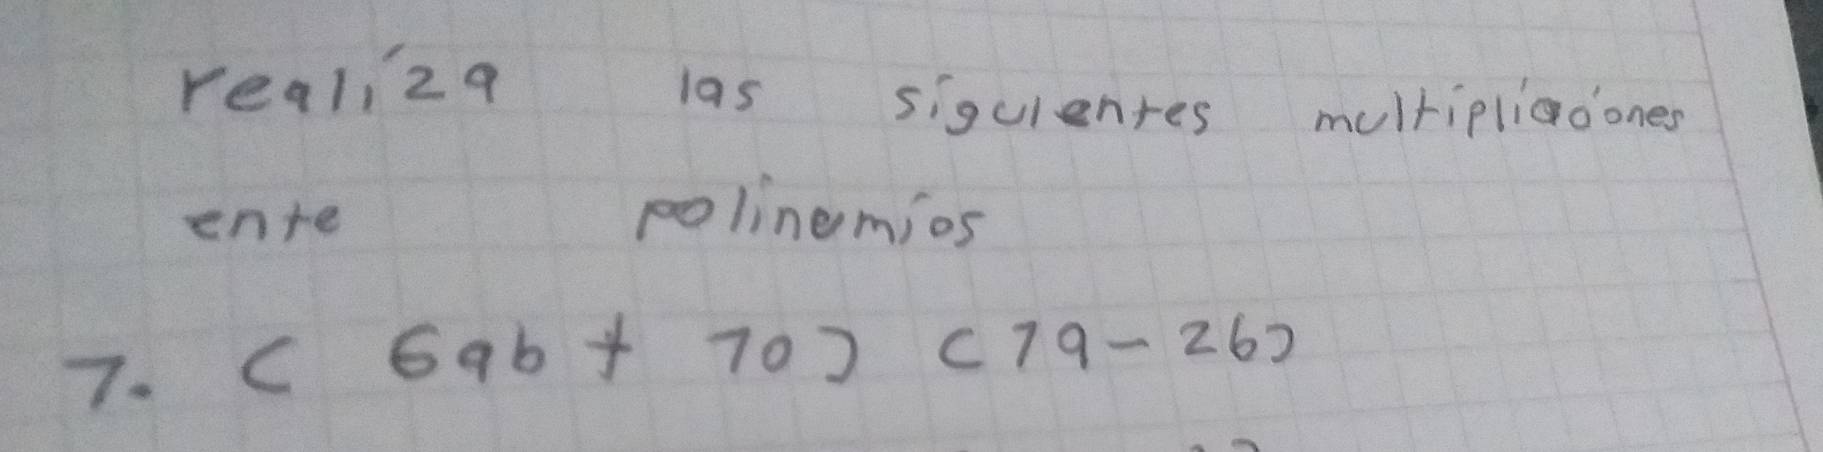 realiza las siguientes multiplicaciones
ente polinomios
7. ( 6ab + 70) (7a - 2b)